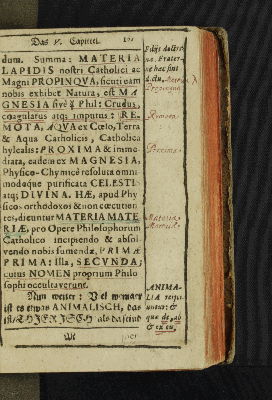 Das V. Capittel.
dum. Summa: MATERIA
LAPIDIS nostri Catholici ac
Magni PROPINQVA, sicuti eam
nobis exhibet Natura, est MA
GNESIA sive ☿ Phil: Crudus,
coagulatus atq; imputus: RE-
MOTA, AQVA ex Cœlo, Terra
& Aqua Catholicis, Catholica
hylealis: PROXIMA & imme-
diata, eadem ex MAGNESIA,
Physico-Chymicè resoluta omni
modaque purificata CELESTI
atq; DIVINA. HÆ, apud Phy
sicos orthodoxos & non cœcutien
tes, dicuntur MATERIA MATE
RIÆ, pro Opere Philosophorum
Catholico incipiendo & absol-
vendo nobis sumendæ, PRIMÆ
PRIMA: Illa, SECVNDA;
cuius NOMEN proprium Philo
sophi occultaverunt.
Nun weiter:
ist es etwas ANIMALISCH, das
ist/ THIERISCH als da seind
Filijs doctri-
næ. Frater-
nè hæc sint
dicta.
Materia
Propinqua
Remota
Proxima
Materia
Materiæ
ANIMA-
LIA rejici
untur: &
quæ de, ab
& ex eis,